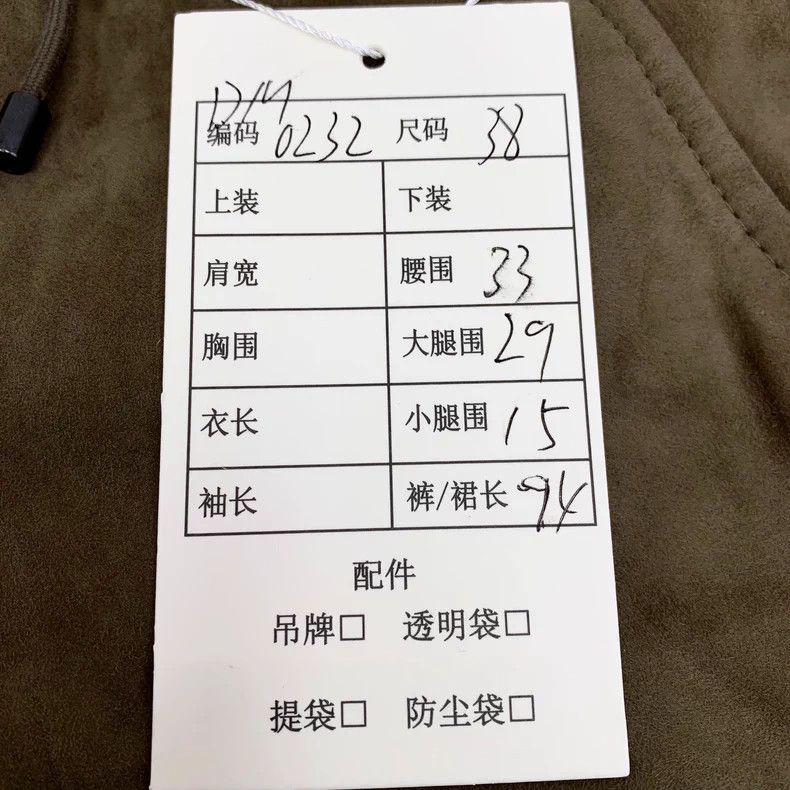 DM
编码 0232 尺码 38
上装 下装
肩宽 腰围 33
胸围 大腿围 29
衣长 小腿围 15
袖长 裤/裙长 94
配件
吊牌□ 透明袋□
提袋□ 防尘袋□